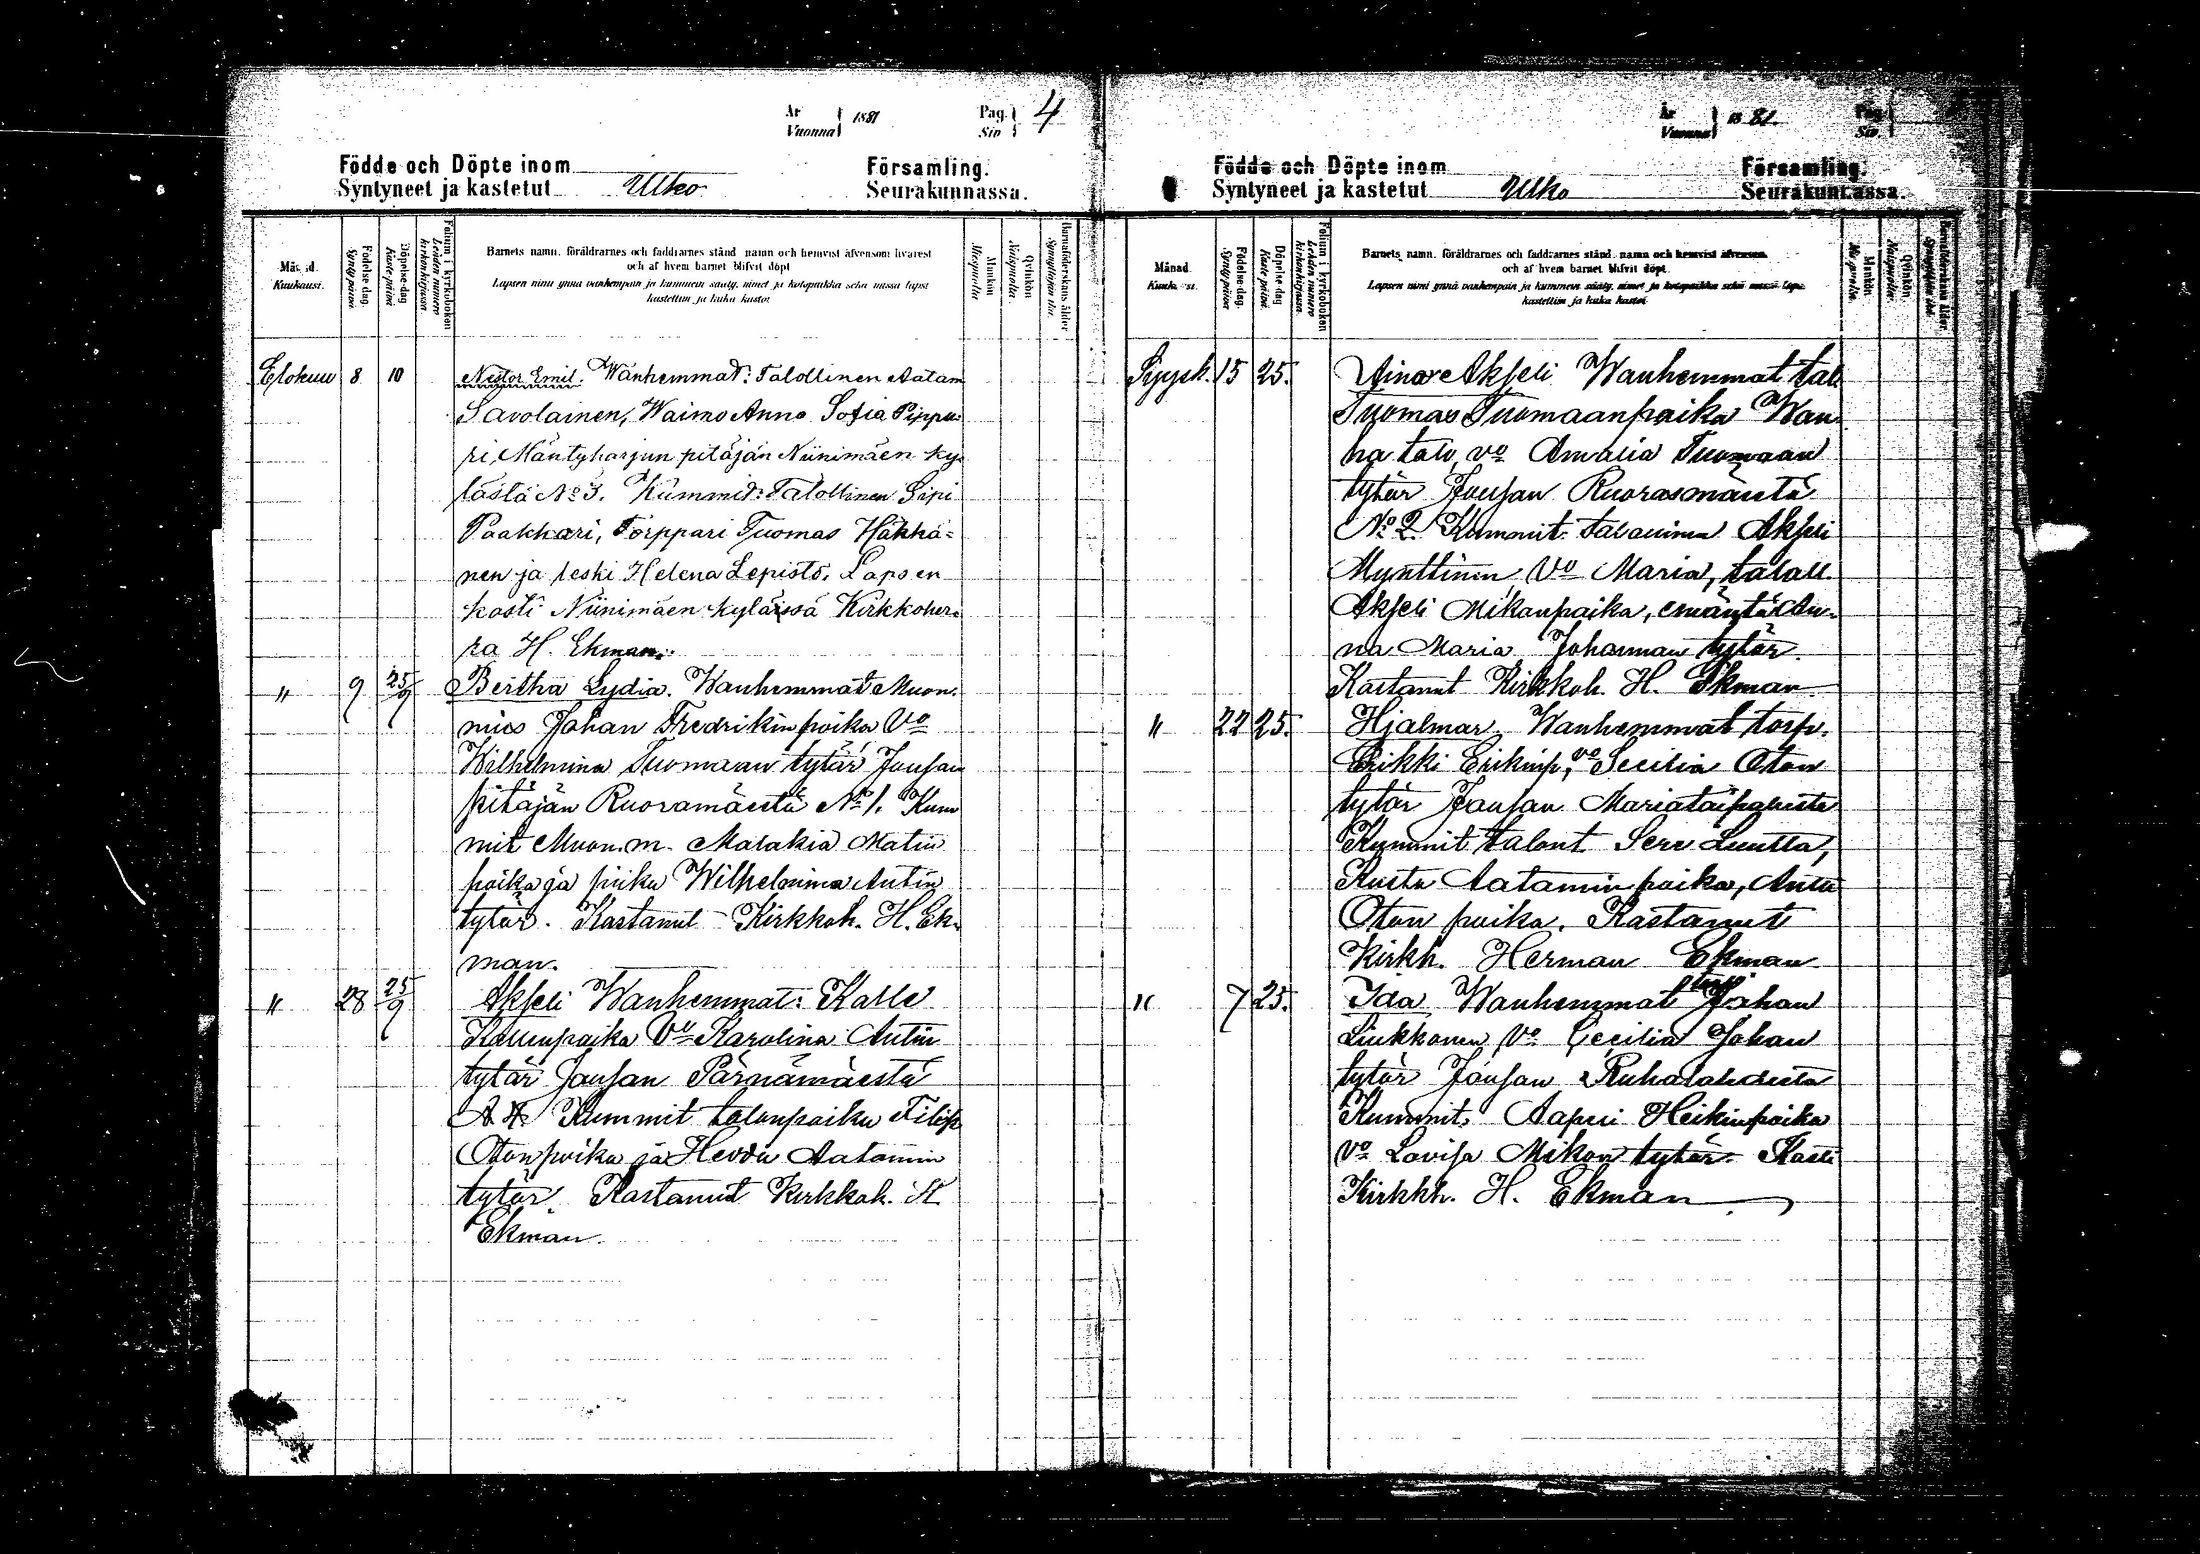 År 1881 Pag. 4
Vuonna Siv
Födde och Döpte inom Församling.
Syntyneet ja kastetut Ulko Seurakunnassa.
Månad. Kuukausi.
Födelse-dag. Syntypäivä.
Döpelse-dag Kastepäivä.
Folium i kyrkoboken Lehden numero kirkonkirjassa
Barnets namn, föräldrarnes och faddrarnes stånd, namn och hemvist äfvensom hvarest
och af hvem barnet blifvit döpt
Lapsen nimi ynnä vanhempain ja kummein sääty, nimet ja kotopaikka sekä missä lapsi
kastettiin ja kuka kastoi
Mankön Miespuolia
Qvinkön Naispuolia.
Barnaföderskans ålder Synnyttäjän ikä.
Elokuu 8 10 Nestor Emil. Wanhemmat: Talollinen Aatam
Savolainen, Waimo Anna Sofia Pippu-
ri, Mäntyharjun pitäjän Niinimäen ky-
lästä No 3. Kummit: Talollinen Sipi
Paakkari, Torppari Tuomas Häkkä-
nen ja leski Helena Lepistö. Lapsen
kasti Niinimäen kylässä Kirkkoher-
ra H. Ekman.
" 9 25/9 Bertha Lydia. Wanhemmat Muon.
mies Johan Fredrikin poika Vo
Wilhelmina Tuomaan tytär Jaalan
pitäjän Ruoramäestä No 1. Kum
mit Muon. m. Malakia Matin
poika ja piika Wilhelmina Antin
tytär. Kastanut Kirkkoh. H. Ek-
man.
" 28 25/9 Akseli Wanhemmat: Kalle
Kallenpoika Vo Karolina Antin
tytär Jaalan Pärnämäestä
Kummit talonpoika Filip
Otonpoika ja Hedda Aatamin
tytär. Kastanut Kirkkoh. H.
Ekman.
År 1881. Pag.
Vuonna Siv.
Födde och Döpte inom Församling.
Syntyneet ja kastetut Ulko Seurakunnassa.
Månad. Kuukausi.
Födelse-dag. Syntypäivä
Döpelse-dag Kastepäivä.
Folium i kyrkoboken Lehden numero kirkonkirjassa
Barnets namn, föräldrarnes och faddrarnes stånd, namn och hemvist äfvensom
och af hvem barnet blifvit döpt.
Lapsen nimi ynnä vanhempain ja kummein sääty, nimet ja kotopaikka sekä missä lapsi
kastettiin ja kuka kastoi.
Mankön. Miespuolia.
Qvinkön. Naispuolia.
Barnaföderskans ålder. Synnyttäjän ikä.
Syysk. 15 25. Akseli Wanhemmat tal.
Tuomas Tuomaanpoika Wan-
ha talo, vo Amalia Tuomaan
tytär Jaalan Ruorasmäestä
No 2. Kummit: talollinen Akseli
Mynttinen Vo Maria, taloll.
Akseli Mikonpoika, emäntä An-
na Maria Johannan tytär.
Kastanut Kirkkoh. H. Ekman
" 22 25. Hjalmar Wanhemmat torp.
Erikki Erikinp, vo Secilia Oton
tytär Jaalan
Kummit talont
Kusta Aatamin poika, Antti
Oton poika. Kastanut
Kirkh. Herman Ekman
" 7 25. Ida Wanhemmat Johan
Liukkonen, Vo Cecilia Johan
tytär Jaalan
Kummit: Aaperi Heikinpoika
Vo Lovisa Mikon tytär. Kasti
Kirkkh. H. Ekman